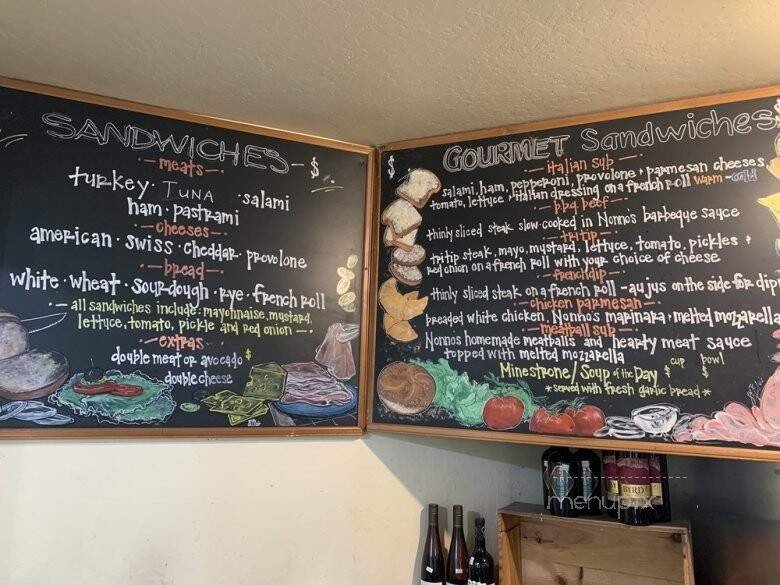 SANDWICHES - $
- meats -
turkey · TUNA · salami
ham · pastrami
- cheeses -
american · swiss · cheddar · provolone
- bread -
white · wheat · sourdough · rye · french roll
- all sandwiches include: mayonnaise, mustard,
lettuce, tomato, pickle and red onion -
- extras -
double meat or avocado $
double cheese
$ GOURMET Sandwiches
- italian sub -
salami, ham, pepperoni, provolone + parmesan cheeses,
tomato, lettuce + italian dressing on a french roll warm - cold
- bbq beef -
thinly sliced steak slow cooked in Nonnos barbeque sauce
- tritip -
tritip steak, mayo, mustard, lettuce, tomato, pickles +
red onion on a french roll with your choice of cheese
- frenchdip -
thinly sliced steak on a french roll - au jus on the side for dip
- chicken parmesan -
breaded white chicken, Nonno's marinara + melted mozzarella
- meatball sub -
Nonnos homemade meatballs and hearty meat sauce
topped with melted mozzarella
Minestrone/Soup of the Day cup $ bowl $
* served with fresh garlic bread *
BYRD
menupix